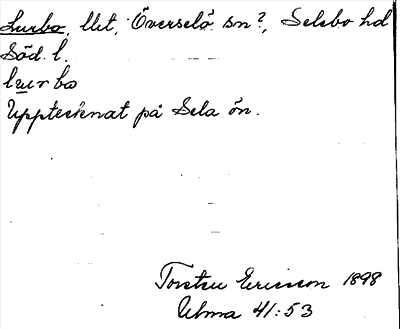 Lurbo, llet, Överselö sn?, Selebo hd
Söd. l.
lurbo
Upptecknat på Sela ön.
Torsten Ericsson 1898
Ulma 41:53